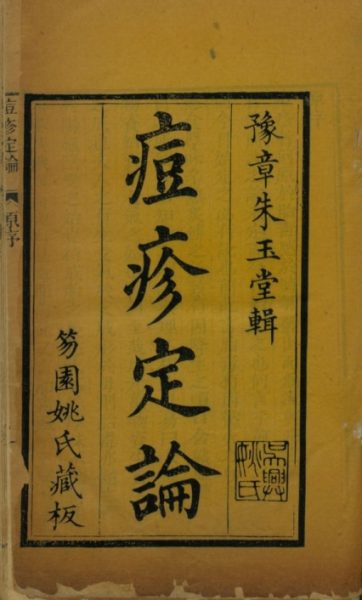 豫章朱玉堂輯
痘疹定論
笏園姚氏藏板
吳興
姚氏
痘疹定論
原序